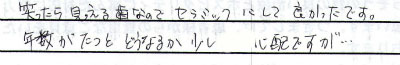 笑ったら見える歯なので セラミックにして良かったです。
年数がたつとどうなるか少し 心配ですが…